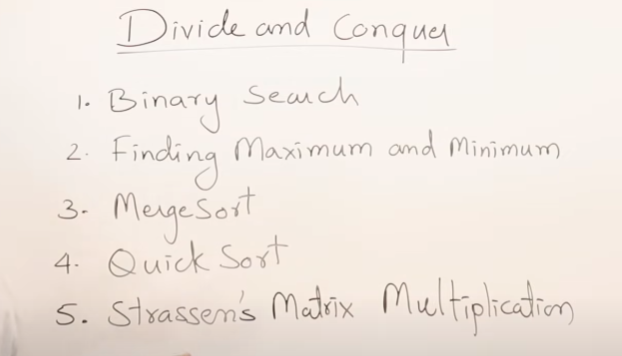 Divide and Conquer
1. Binary Search
2. Finding Maximum and Minimum
3. MergeSort
4. Quick Sort
5. Strassen's Matrix Multiplication